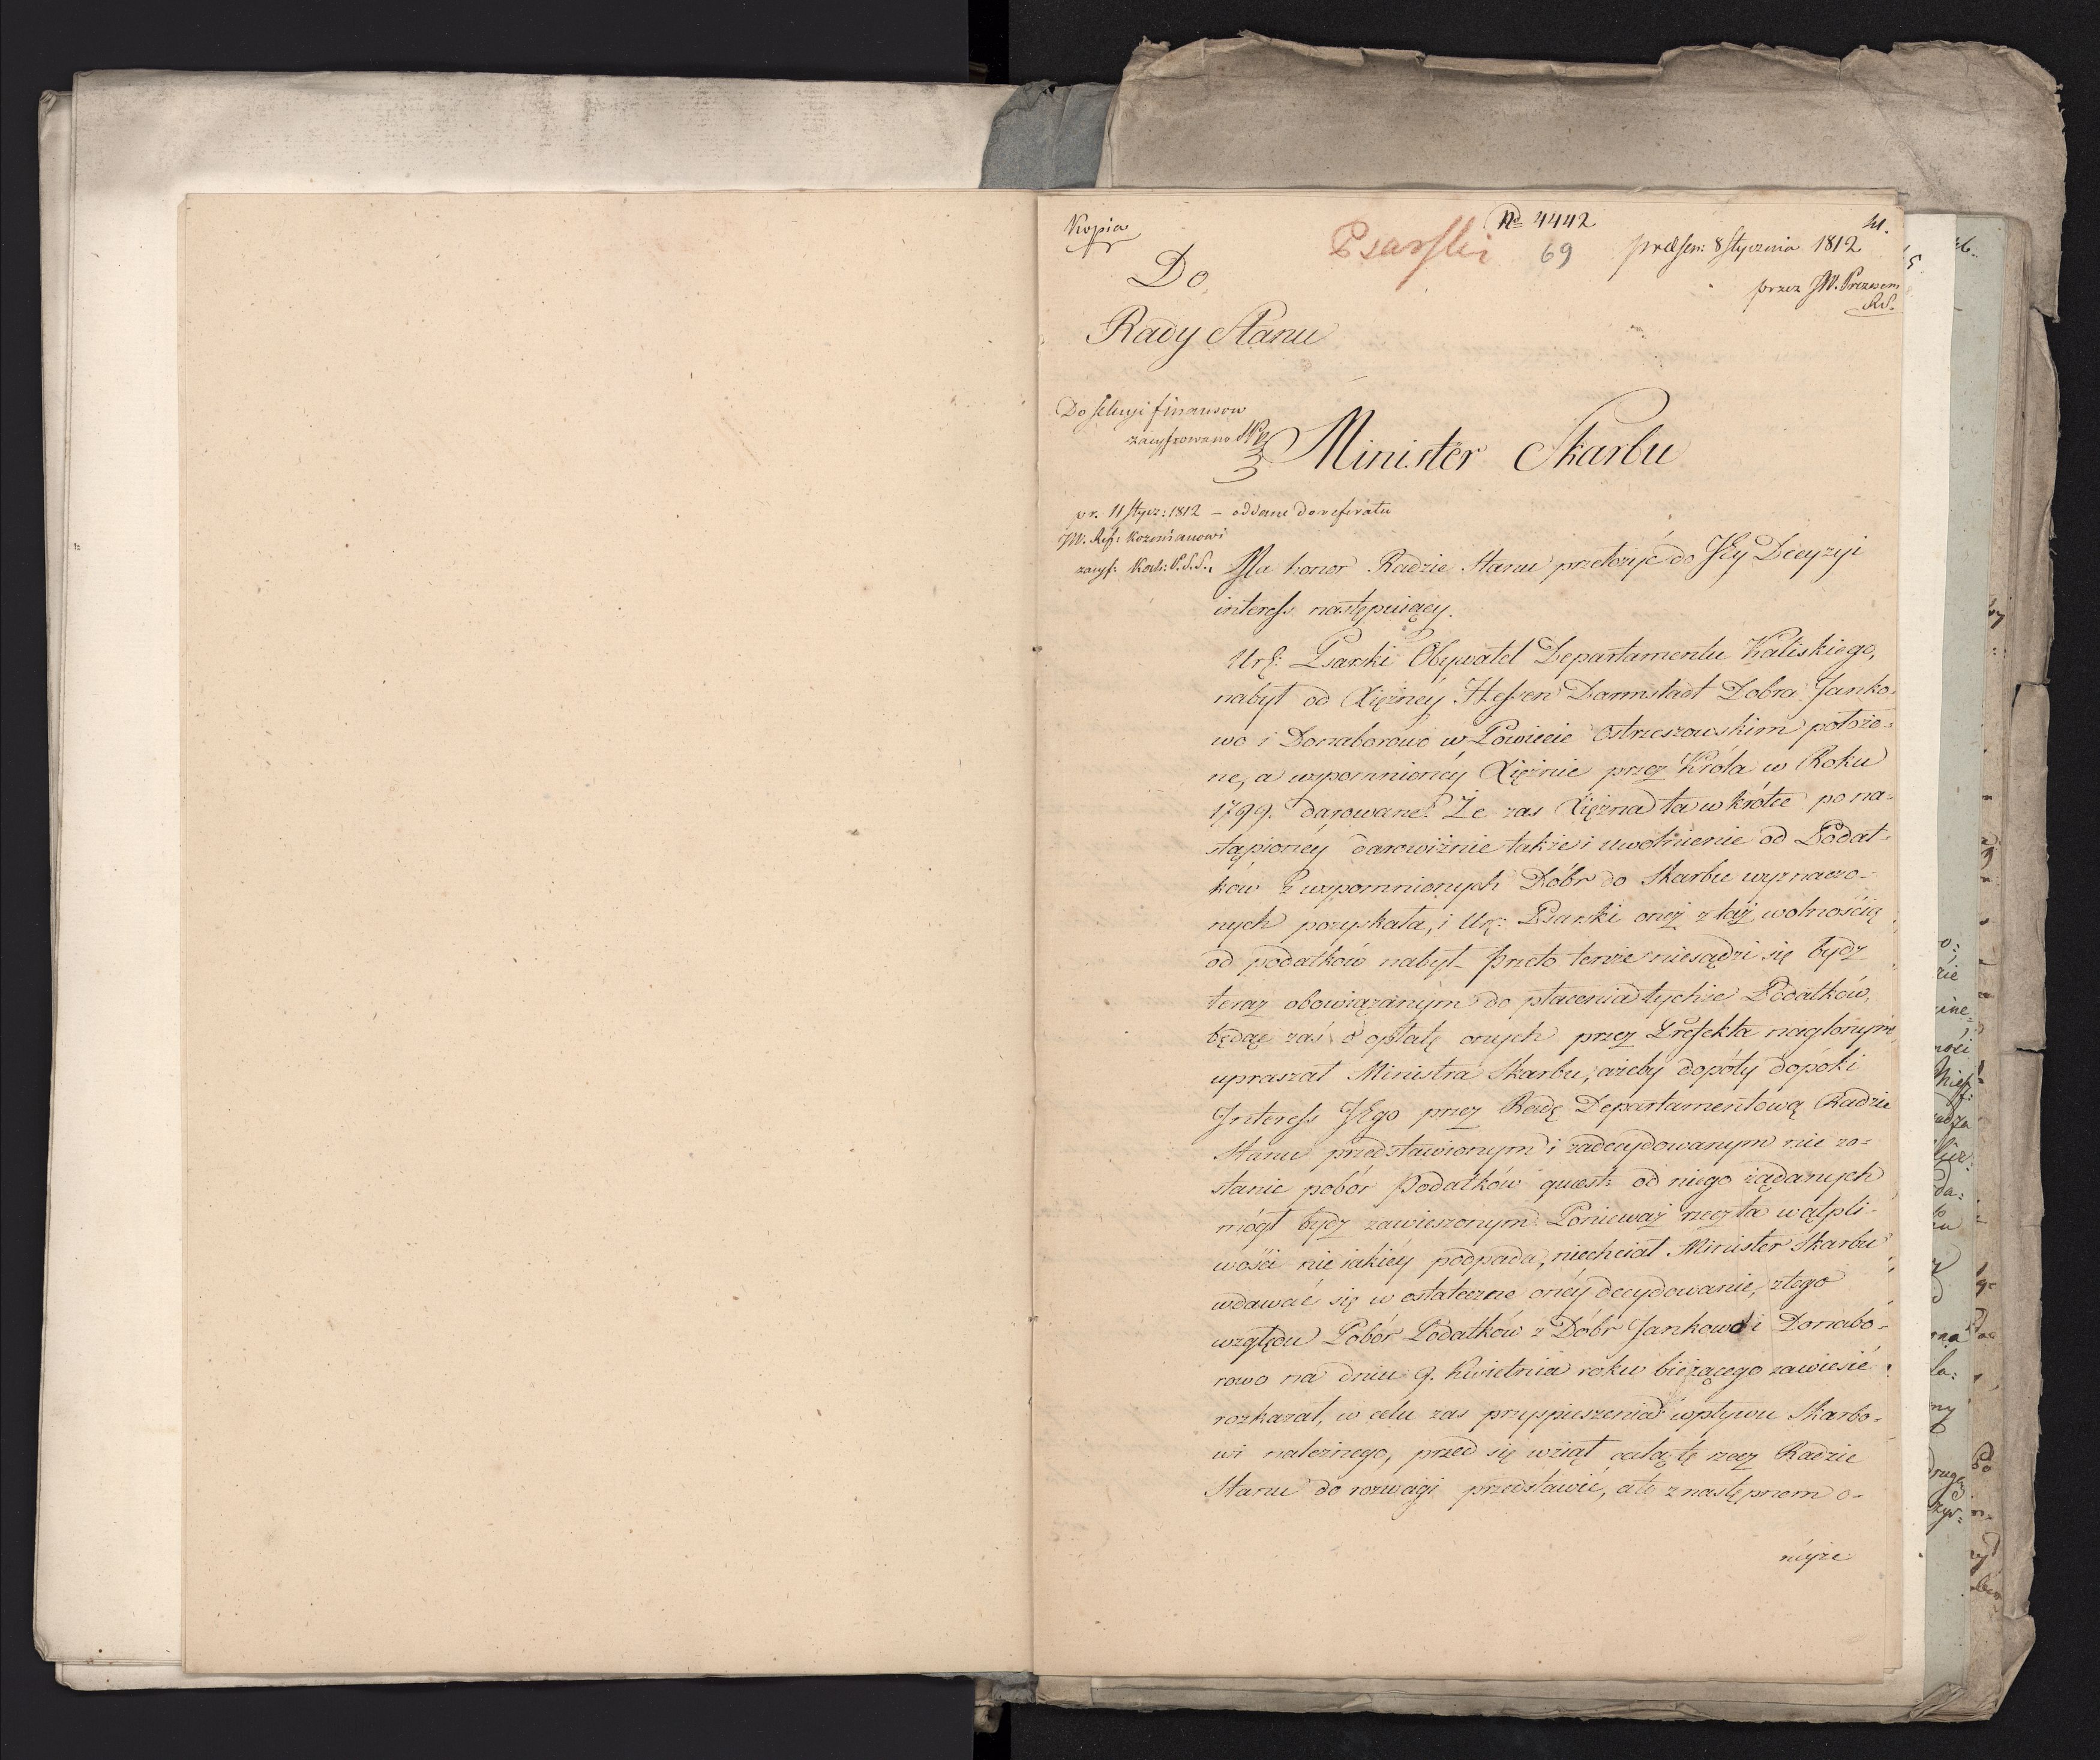 Kopia
No 4442
41.
Psarski
69
præsen: 8 Stycznia 1812
przez JW. Prezesem
R.S.
Do
Rady Stanu
Do Sekcyi finansow
zacyfrowano
Minister Skarbu
pr. 11 Stycz: 1812 – oddane do referatu
JW. Ref: Kozmianowi
zacyf:
Ma honor Radzie Stanu przełożyć do JEy Decyzyi
interess następuiący.
Ur: Psarski Obywatel Departamentu Kaliskiego,
nabył od Xiężney Hessen Darmstadt Dobra Janko-
wo i Donaborowo w Powiecie Ostrzeszowskim położo-
ne, a wspomnioney Xiężnie przez Króla w Roku
1799. darowane. Że zas Xiężna ta wkrótce po na-
stąpioney darowiźnie także i uwolnienie od Podat-
ków z wspomnionych Dóbr do Skarbu wyznaczo-
nych pozyskała, i Ur: Psarski onez z tąż wolnością
od podatków nabył przeto tenże niesądzi się bydz
teraz obowiązanym do płacenia tychże Podatków,
będąc zaś o opłatę onych przez Prefekta naglonym,
upraszał Ministra Skarbu, ażeby dopóty dopóki
Interess JEgo przez Radę Departamentową Radzie
Stanu przedstawionym i zadecydowanym nie zo-
stanie pobór Podatków quest: od niego żądanych
mógł bydz zawieszonym. Ponieważ rzecz ta wątpli-
wości nieiakiéy podpada, niechciał Minister Skarbu
wdawać się w ostateczne onéy decydowanie, z tego
względu Pobór Podatków z Dóbr Jankowo i Donabo-
rowo na dniu 9. Kwietnia roku bieżącego zawiesić
rozkazał, w celu zas przyspieszenia wpływu Skarbo-
wi należnego, przed się wziął całą tę rzecz Radzie
Stanu do rozwagi przedstawić, ale z następnem o-